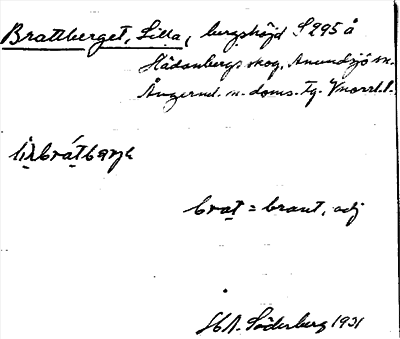 Brattberget, Lilla, bergshöjd S 295 å
Hädanbergs skog, Anundsjö sn.
Ångermd. n. doms. Fg. Vnorrl. l.
brat = brant, adj
H.A. Söderberg 1931